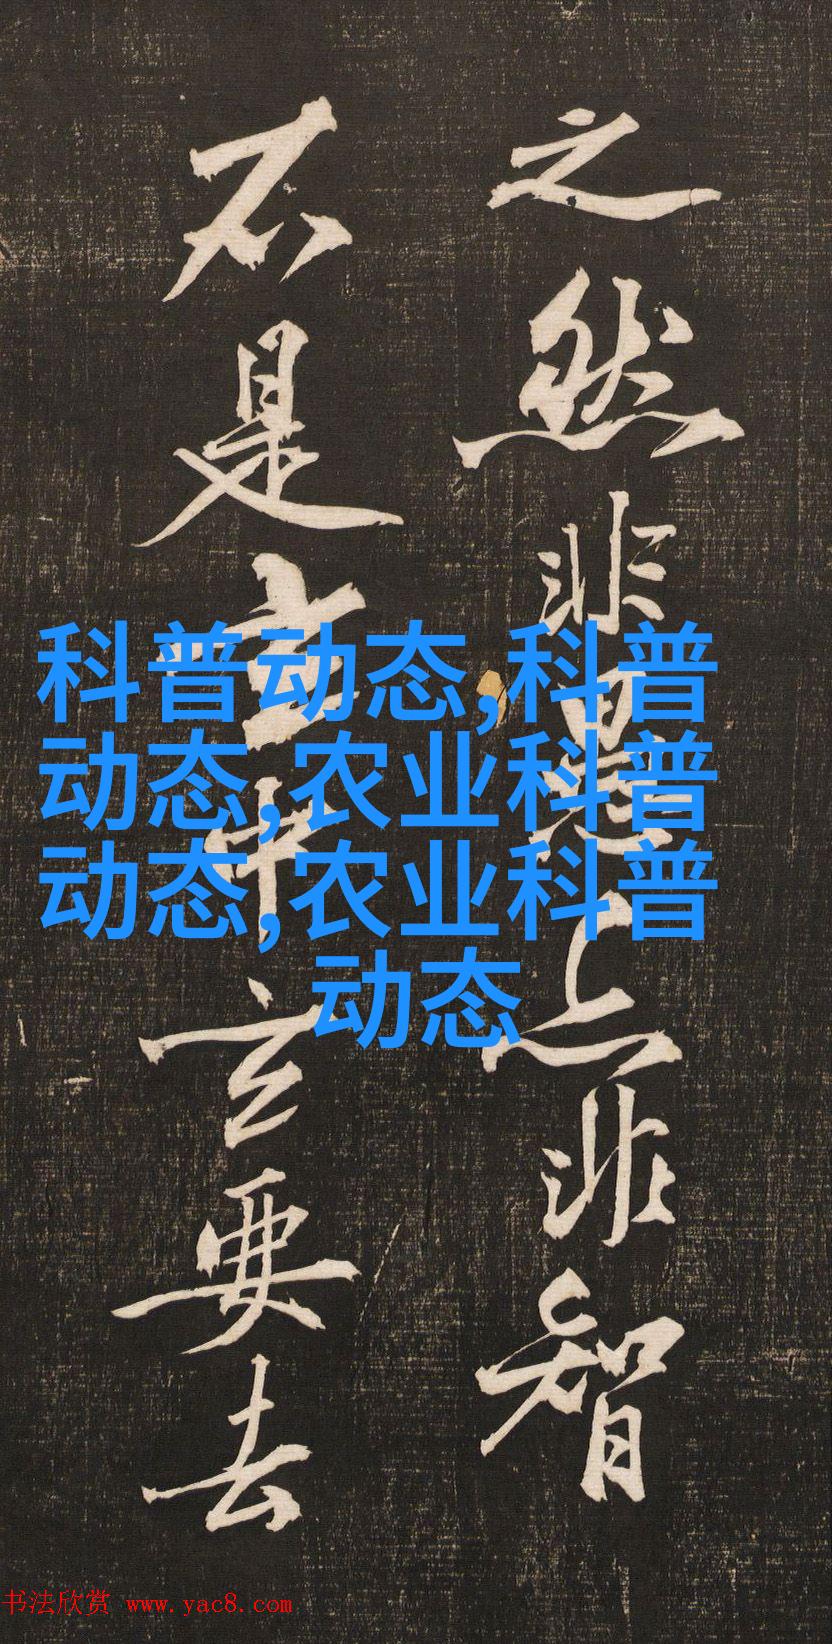 之然非愚非智
不是中玄要去
科普动态,科普
动态,农业科普
动态,农业科普
动态
书法欣赏 www.yac8.com